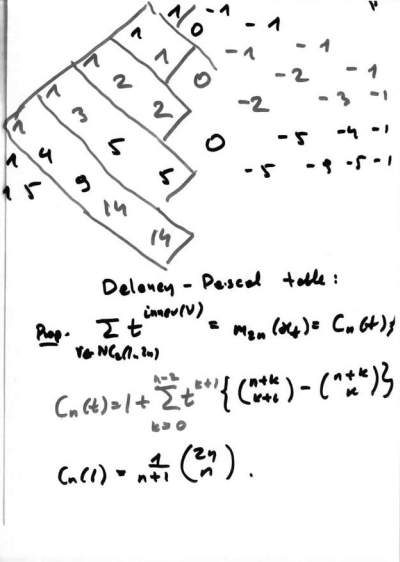 1 -1
1 0 -1
1 1 -1 -1
1 2 0 -2 -1
1 3 2 -2 -3 -1
1 4 5 0 -5 -4 -1
1 5 9 5 -5 -9 -5 -1
14
14
Delaney - Pascal table:
Prop. ∑ t^{inner(V)} = m_{2n}(x_t) = C_n(t);
V∈NC_2(1,2n)
C_n(t) = 1 + ∑_{k=0}^{n-2} t^{k+1} { \binom{n+k}{k+1} - \binom{n+k}{k} }
C_n(1) = \frac{1}{n+1} \binom{2n}{n} .